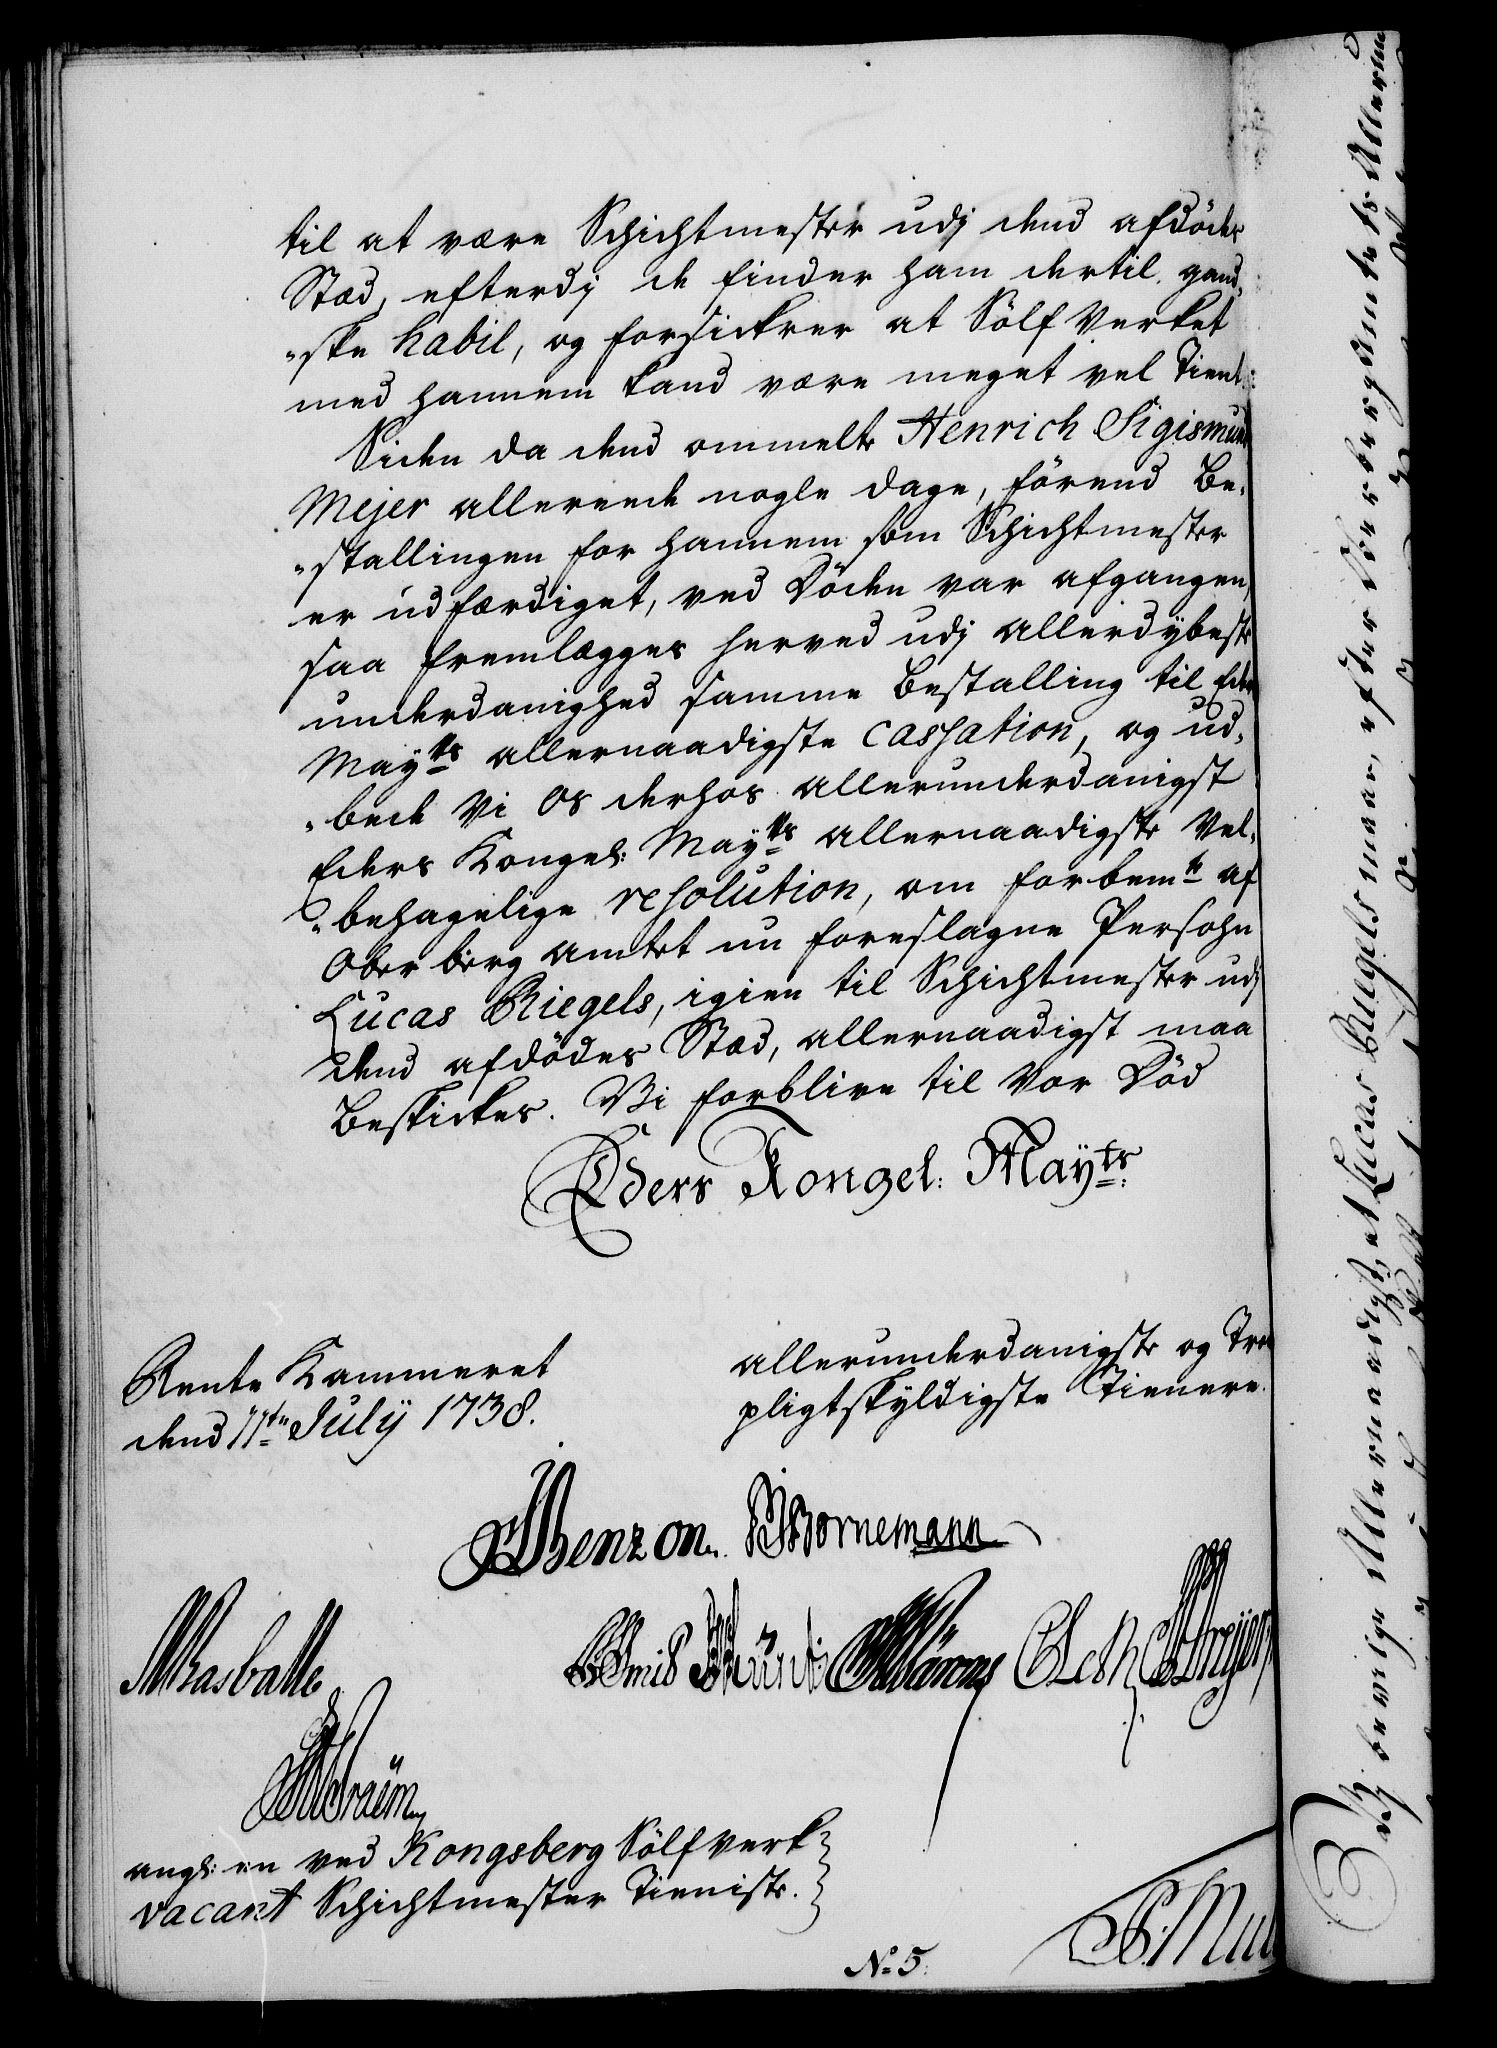 til at være Schichtmester udj dend afdödes
Stæd, efterdj de finder ham dertil gand,
"ske habil, og forsickrer at Sölf Verket
med hannem kand være meget vel Tient.
Siden da dend ommelte Henrich Sigismund
Mejer allereede nogle dage, förend Be,
"stallingen for hannem som Schichtmester
er udfærdiget, ved Döden var afgangen,
saa fremlægges herved udj allerdybeste
underdanighed samme Bestalling til Eders
Mayts allernaadigste Cassation, og ud,
"bede Vi Os derhos allerunderdanigst
Eders Kongel: Mayts allernaadigste Vel,
"behagelige resolution, om forbemte af
Ober berg amtet nu foreslagne Persohn
Lucas Riegels, igien til Schichtmester udj
dend afdödes Stæd, allernaadigst maa
Beskickes. Vi forblive til Vor Död
Eders Kongel: Mayts:
Rente Kammeret
dend 11te July 1738.
allerunderdanigste og Troe
pligtskyldigste Tienere.
Benzon. Bornemann
Braëm
angl: en ved Kongsberg Sölfverk
vacant Schichtmester Tieniste.
No 5.
bevilge Allernaadigst, at Lucas Riegels maae, efter Ober bergamtets Allerun